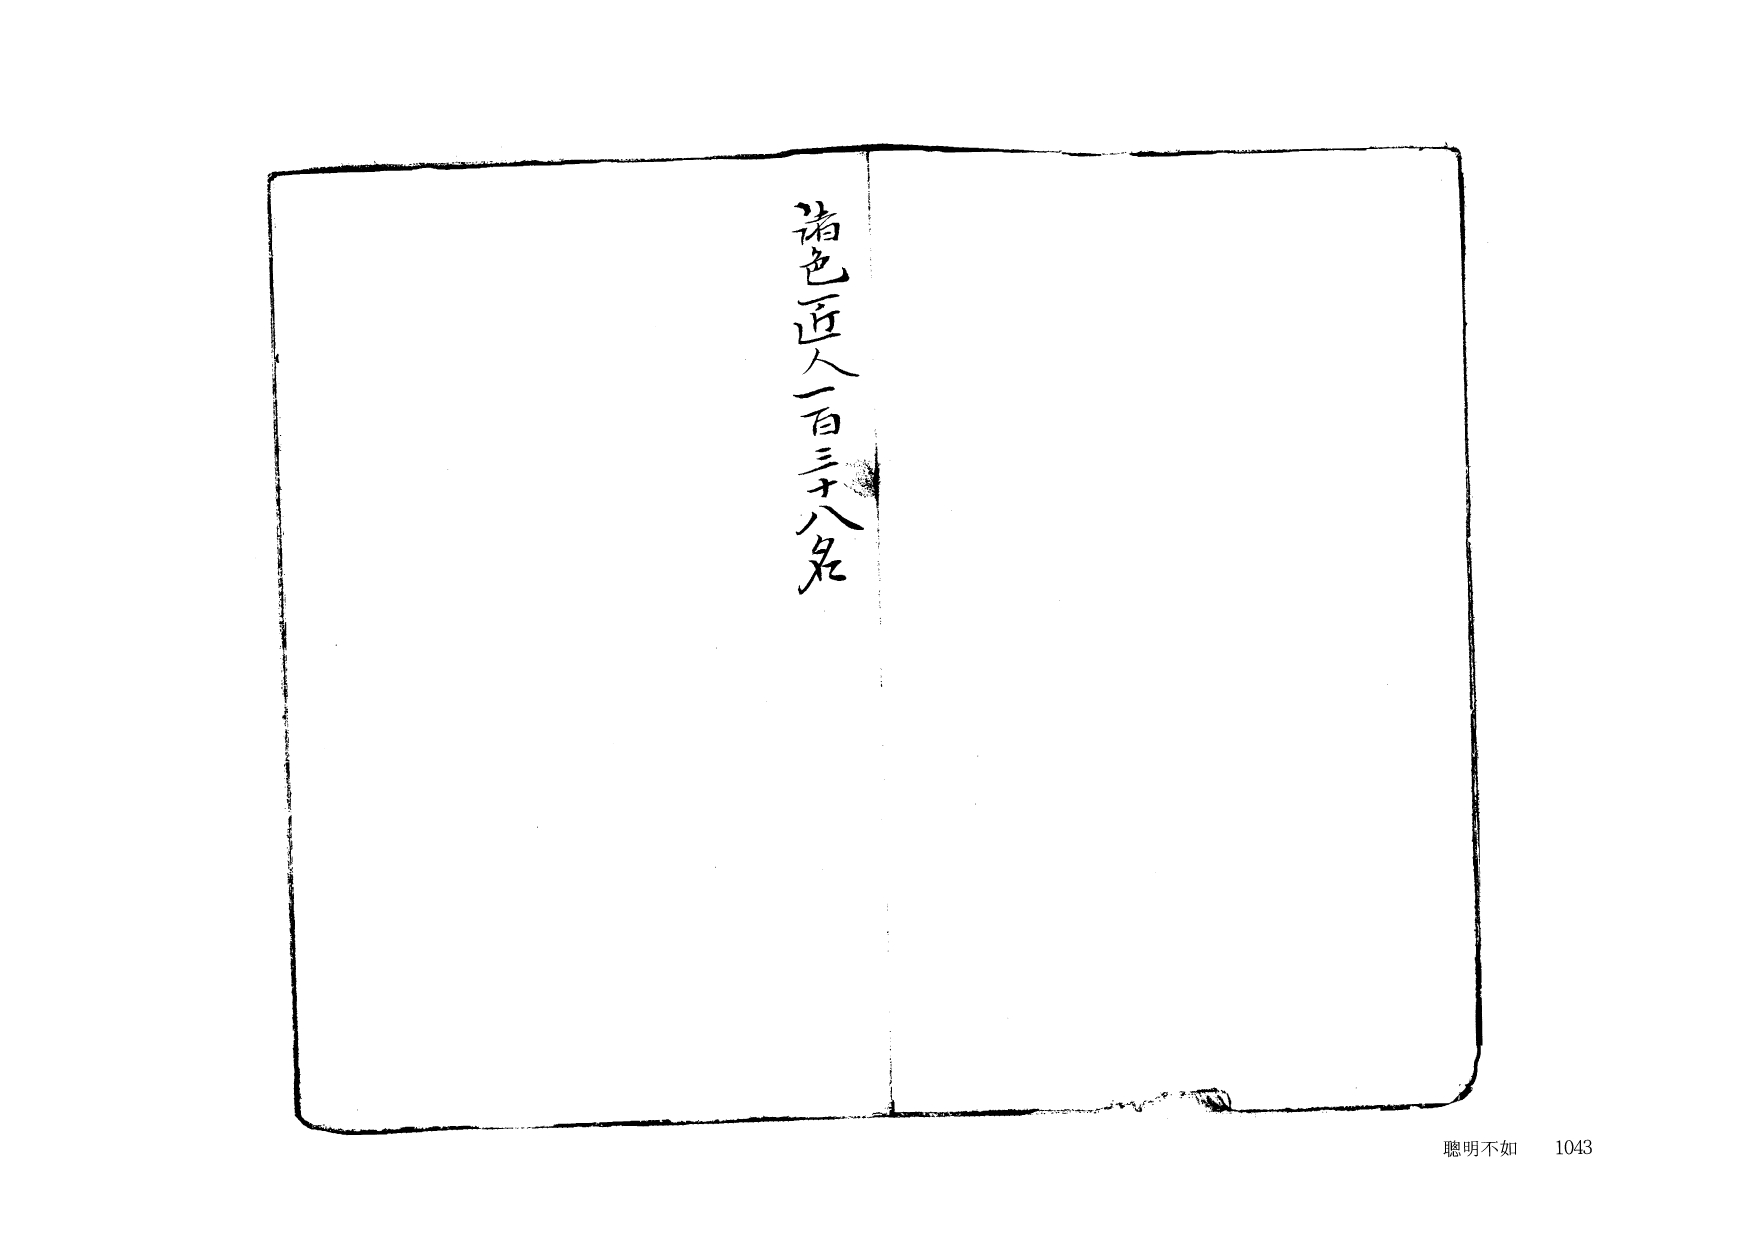 諸色匠人一百三十八名
聰明不如 1043